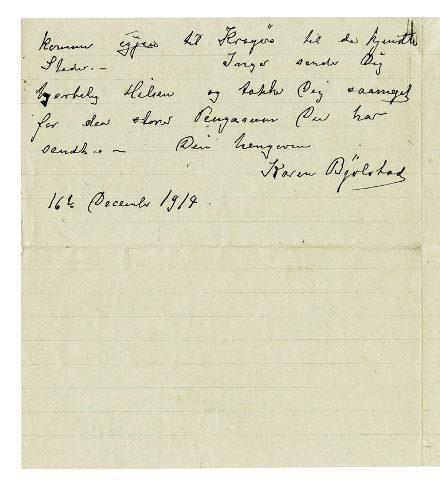 komme igjen til Kragerø til de kjendte
Steder. – Inga sender Dig
hjertelig Hilsen og takke Dig saameget
for den store Pengesum Du har
sendt. – Din hengivne
Karen Bjölstad
16de December 1914.